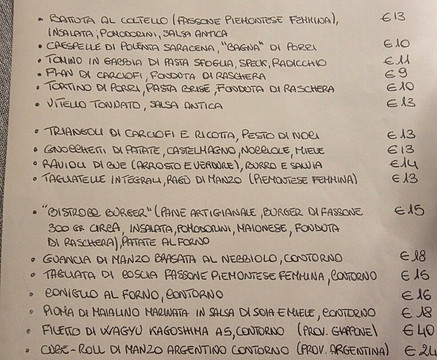 • BATTUTA AL COLTELLO (FASSONE PIEMONTESE FEMMINA), €13
INSALATA, POMODORINI, SALSA ANTICA
• CRESPELLE DI POLENTA SARACENA, "BAGNA" DI PORRI €10
• TOMINO IN GABBIA DI PASTA SFOGLIA, SPECK, RADICCHIO €11
• FLAN DI CARCIOFI, FONDUTA DI RASCHERA €9
• TORTINO DI PORRI, PASTA BRISÉ, FONDUTA DI RASCHERA €10
• VITELLO TONNATO, SALSA ANTICA €13
• TRIANGOLI DI CARCIOFI E RICOTTA, PESTO DI NOCI €13
• GNOCCHETTI DI PATATE, CASTELMAGNO, NOCCIOLE, MIELE €13
• RAVIOLI DI BUE (ARROSTO E VERDURE), BURRO E SALVIA €14
• TAGLIATELLE INTEGRALI, RAGÙ DI MANZO (PIEMONTESE FEMMINA) €13
• "BISTROBÒ BURGER" (PANE ARTIGIANALE, BURGER DI FASSONE €15
300 GR CIRCA, INSALATA, POMODORINI, MAIONESE, FONDUTA
DI RASCHERA), PATATE AL FORNO
• GUANCIA DI MANZO BRASATA AL NEBBIOLO, CONTORNO €18
• TAGLIATA DI COSCIA FASSONE PIEMONTESE FEMMINA, CONTORNO €15
• CONIGLIO AL FORNO, CONTORNO €16
• PIUMA DI MAIALINO MARINATA IN SALSA DI SOIA E MIELE, CONTORNO €18
• FILETTO DI WAGYU KAGOSHIMA A5, CONTORNO (PROV. GIAPPONE) €40
• CUBE-ROLL DI MANZO ARGENTINO CONTORNO (PROV. ARGENTINA)